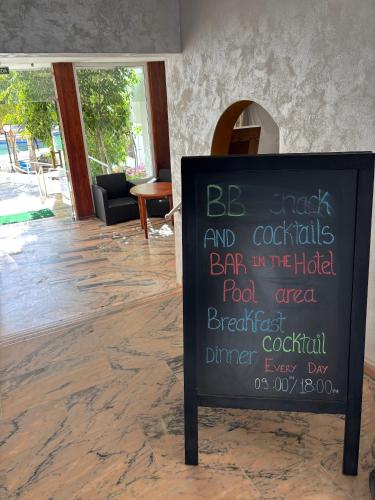 BB Snack
AND cocktails
BAR IN THE Hotel
Pool area
Breakfast
cocktail
Dinner
Every Day
09:00ᵃᵐ/18:00ᵖᵐ